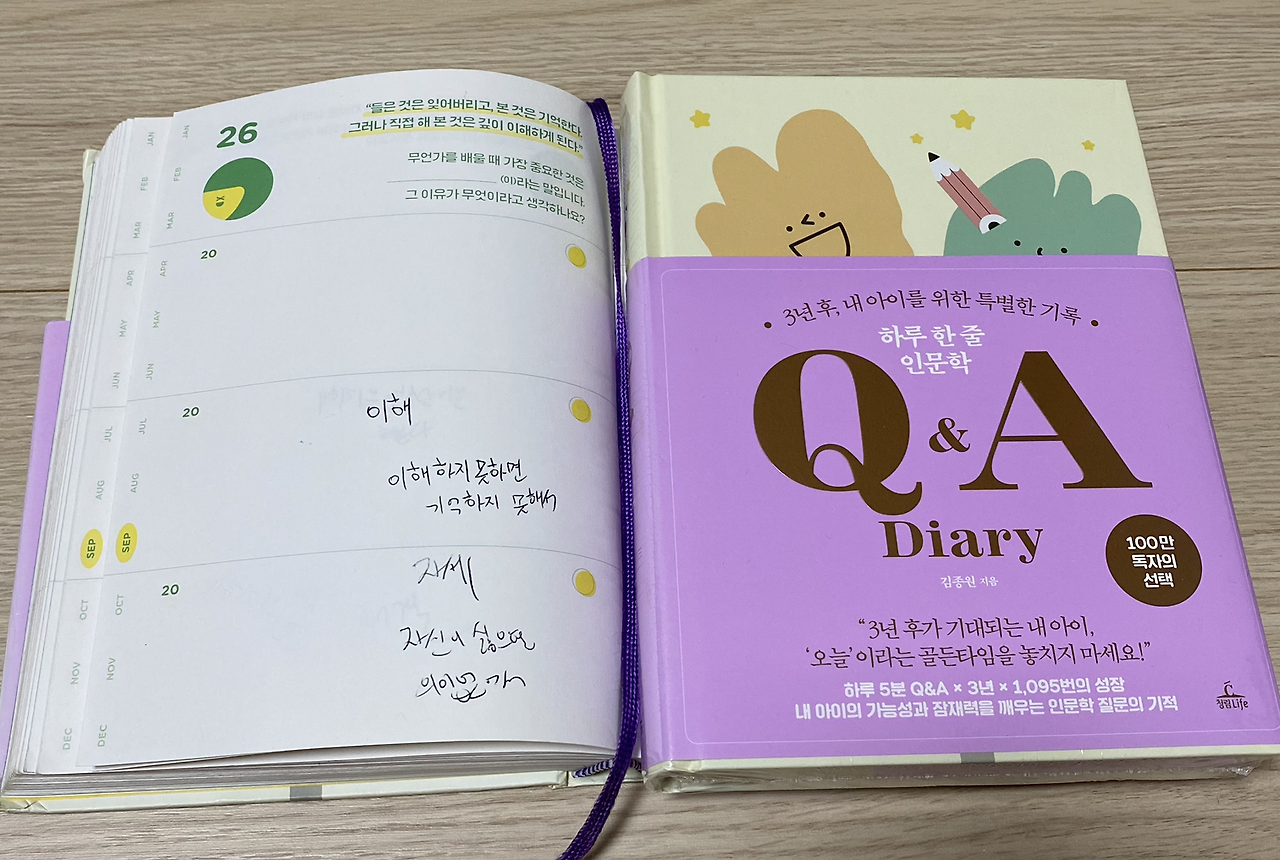 JAN
FEB
MAR
APR
MAY
JUN
JUL
AUG
SEP
OCT
NOV
DEC
JAN
FEB
MAR
APR
MAY
JUN
JUL
AUG
SEP
OCT
NOV
DEC
26
“들은 것은 잊어버리고, 본 것은 기억한다.
그러나 직접 해 본 것은 깊이 이해하게 된다.”
무언가를 배울 때 가장 중요한 것은
(이)라는 말입니다.
그 이유가 무엇이라고 생각하나요?
20
20
이해
이해하지 못하면
기억하지 못해서
20
자세
자신이 싫으면
3년 후, 내 아이를 위한 특별한 기록
하루 한 줄
인문학
Q & A
Diary
김종원 지음
100만
독자의
선택
“3년 후가 기대되는 내 아이,
‘오늘’이라는 골든타임을 놓치지 마세요!”
하루 5분 Q&A × 3년 × 1,095번의 성장
내 아이의 가능성과 잠재력을 깨우는 인문학 질문의 기적
청림Life